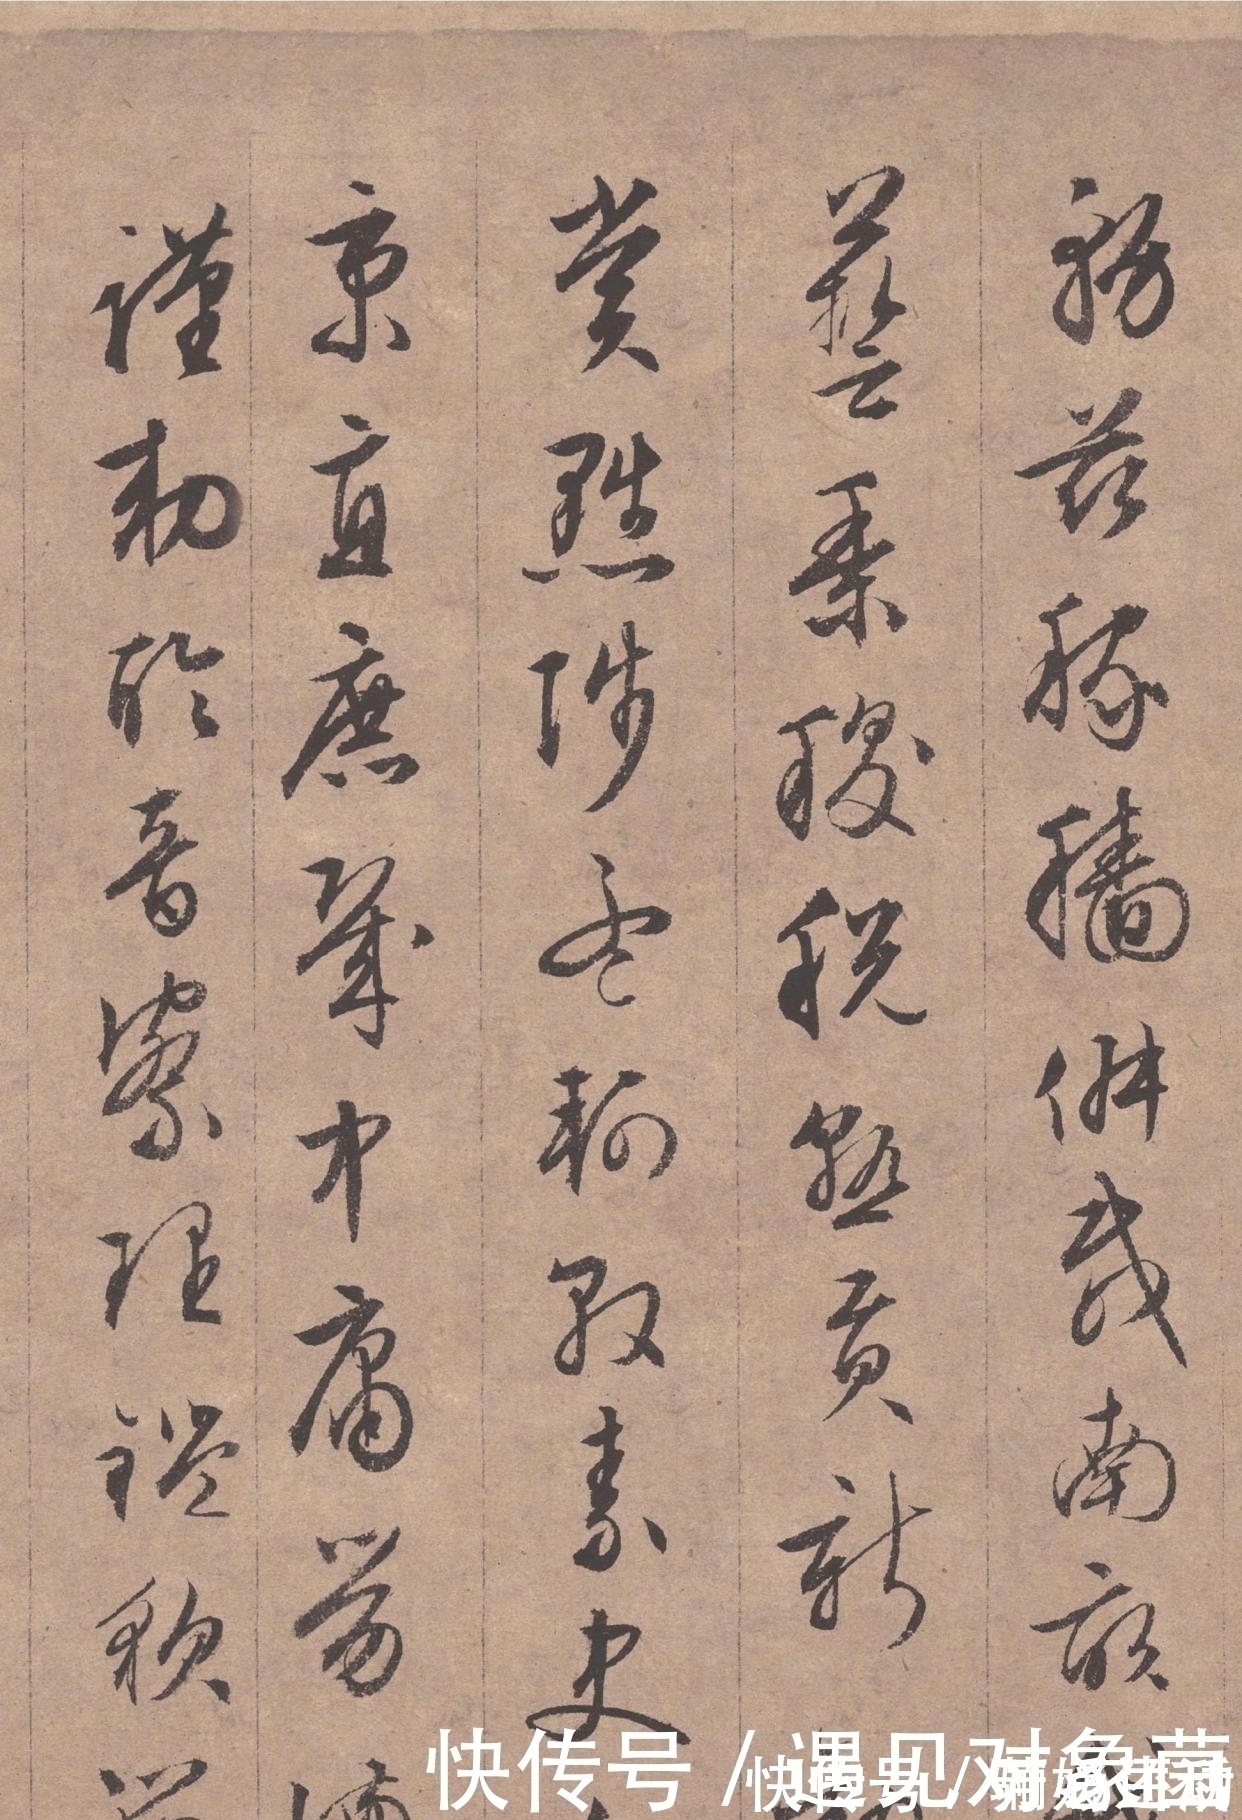 務茲稼穡俶載南畝
藝黍稷稅熟貢新
賞黜陟孟軻敦素史
魚直庶幾中庸勞
謹勑聆音察理鑑貌
快传号 / 遇见对象菌
快传号 /